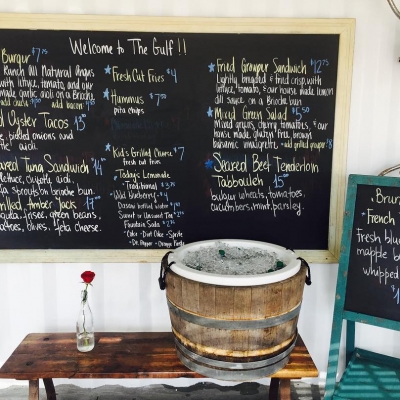 Welcome to The Gulf !!
Burger $7.75
Ranch All Natural Angus
with lettuce, tomato, and our
made garlic aioli on a Brioche
add bacon
Oyster Tacos
pickled onions and
aioli.
Tuna Sandwich $14
lettuce, aioli.
sprouts on brioche bun.
Amber Jack
frisee, green beans,
tomatoes, olives, feta cheese.
Fresh Cut Fries $4
Hummus $7.50
pita chips
Kid's Grilled Cheese $7
fresh cut fries
Today's Lemonade
Traditional
Wild Blueberry
Dasani bottled water
Sweet or Unsweet Tea
Fountain Soda
Coke · Diet Coke · Sprite
Dr. Pepper · Orange Fanta
Fried Grouper Sandwich $12.75
Lightly breaded & fried crisp with
lettuce, tomato, & our house made lemon
dill sauce on a Brioche bun
Mixed Green Salad $5.50
Mixed greens, cherry tomatoes, & our
house made gluten free brown
balsamic vinaigrette - add grilled grouper
Seared Beef Tenderloin
Tabbouleh 15
bulgur wheats, tomatoes,
cucumbers, mint, parsley.
French
Fresh blu
mapple bu
whipped